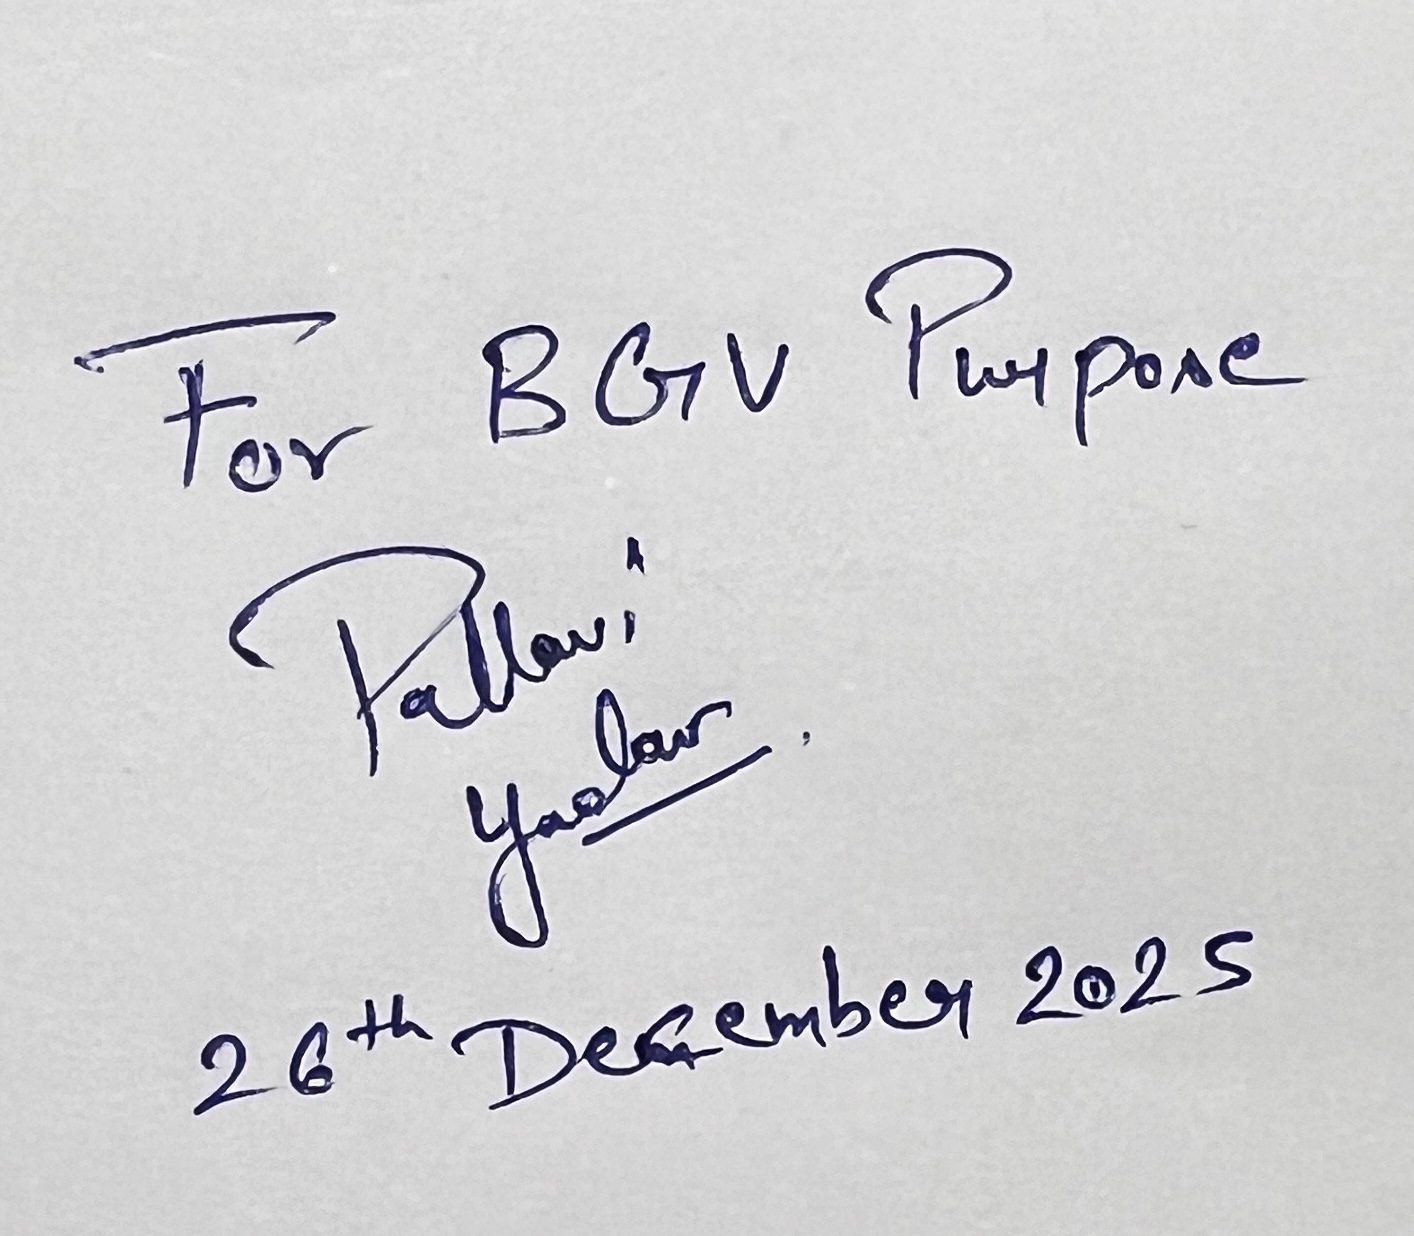 For BGV Purpose
Pallavi
Yadav.
26th December 2025